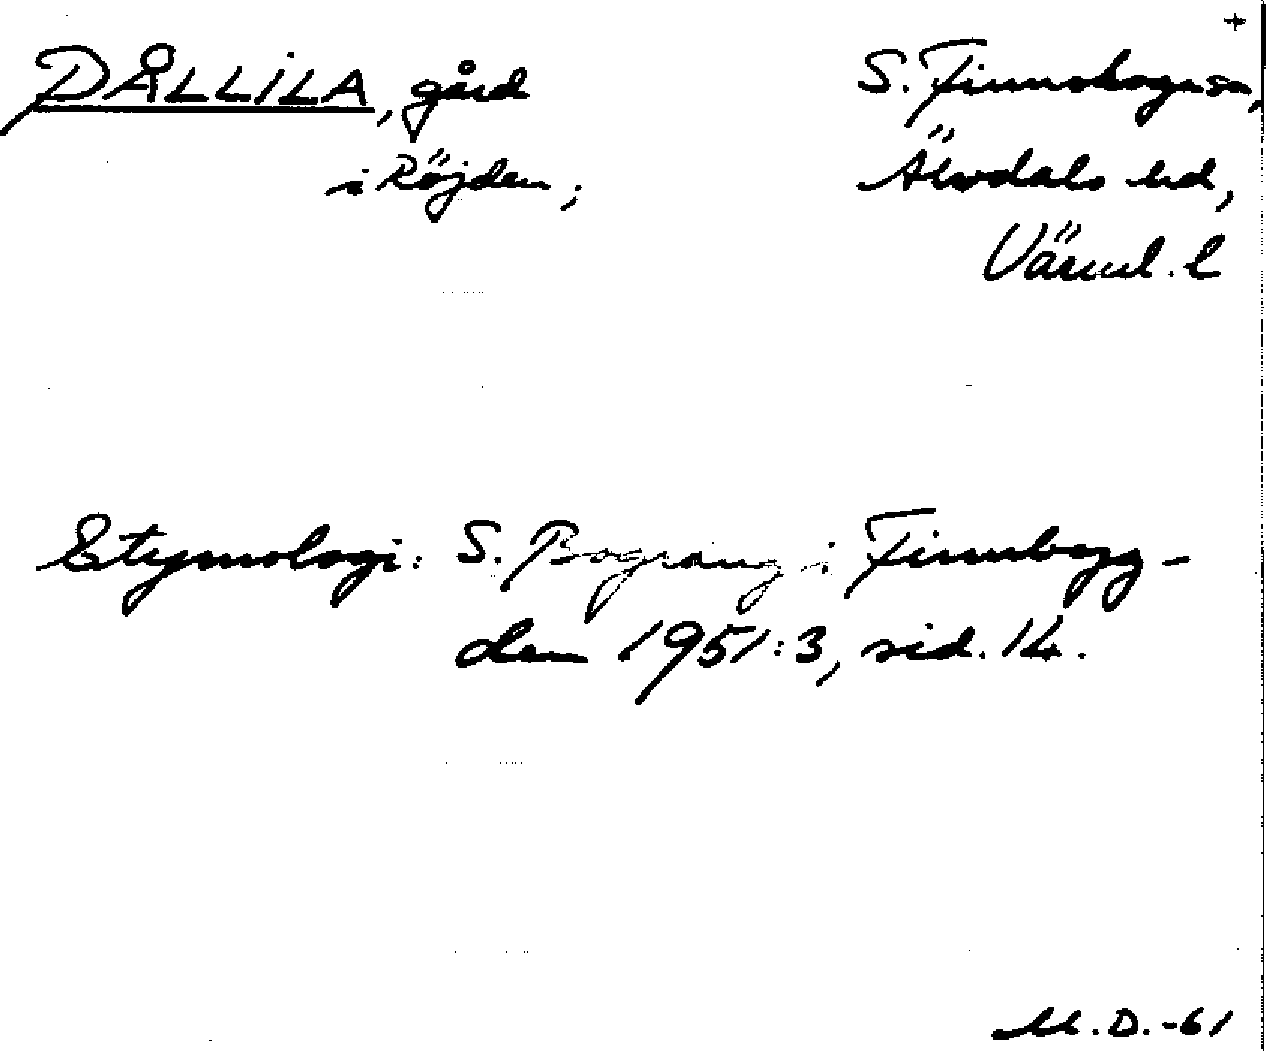 +
DÅLLILA, gård
i Röjden;
S. Finnskogasn,
Älvdals hd,
Värml. l
Etymologi: S. Bograng i Finnbygg-
den 1951:3, sid. 14.
M.D.-61